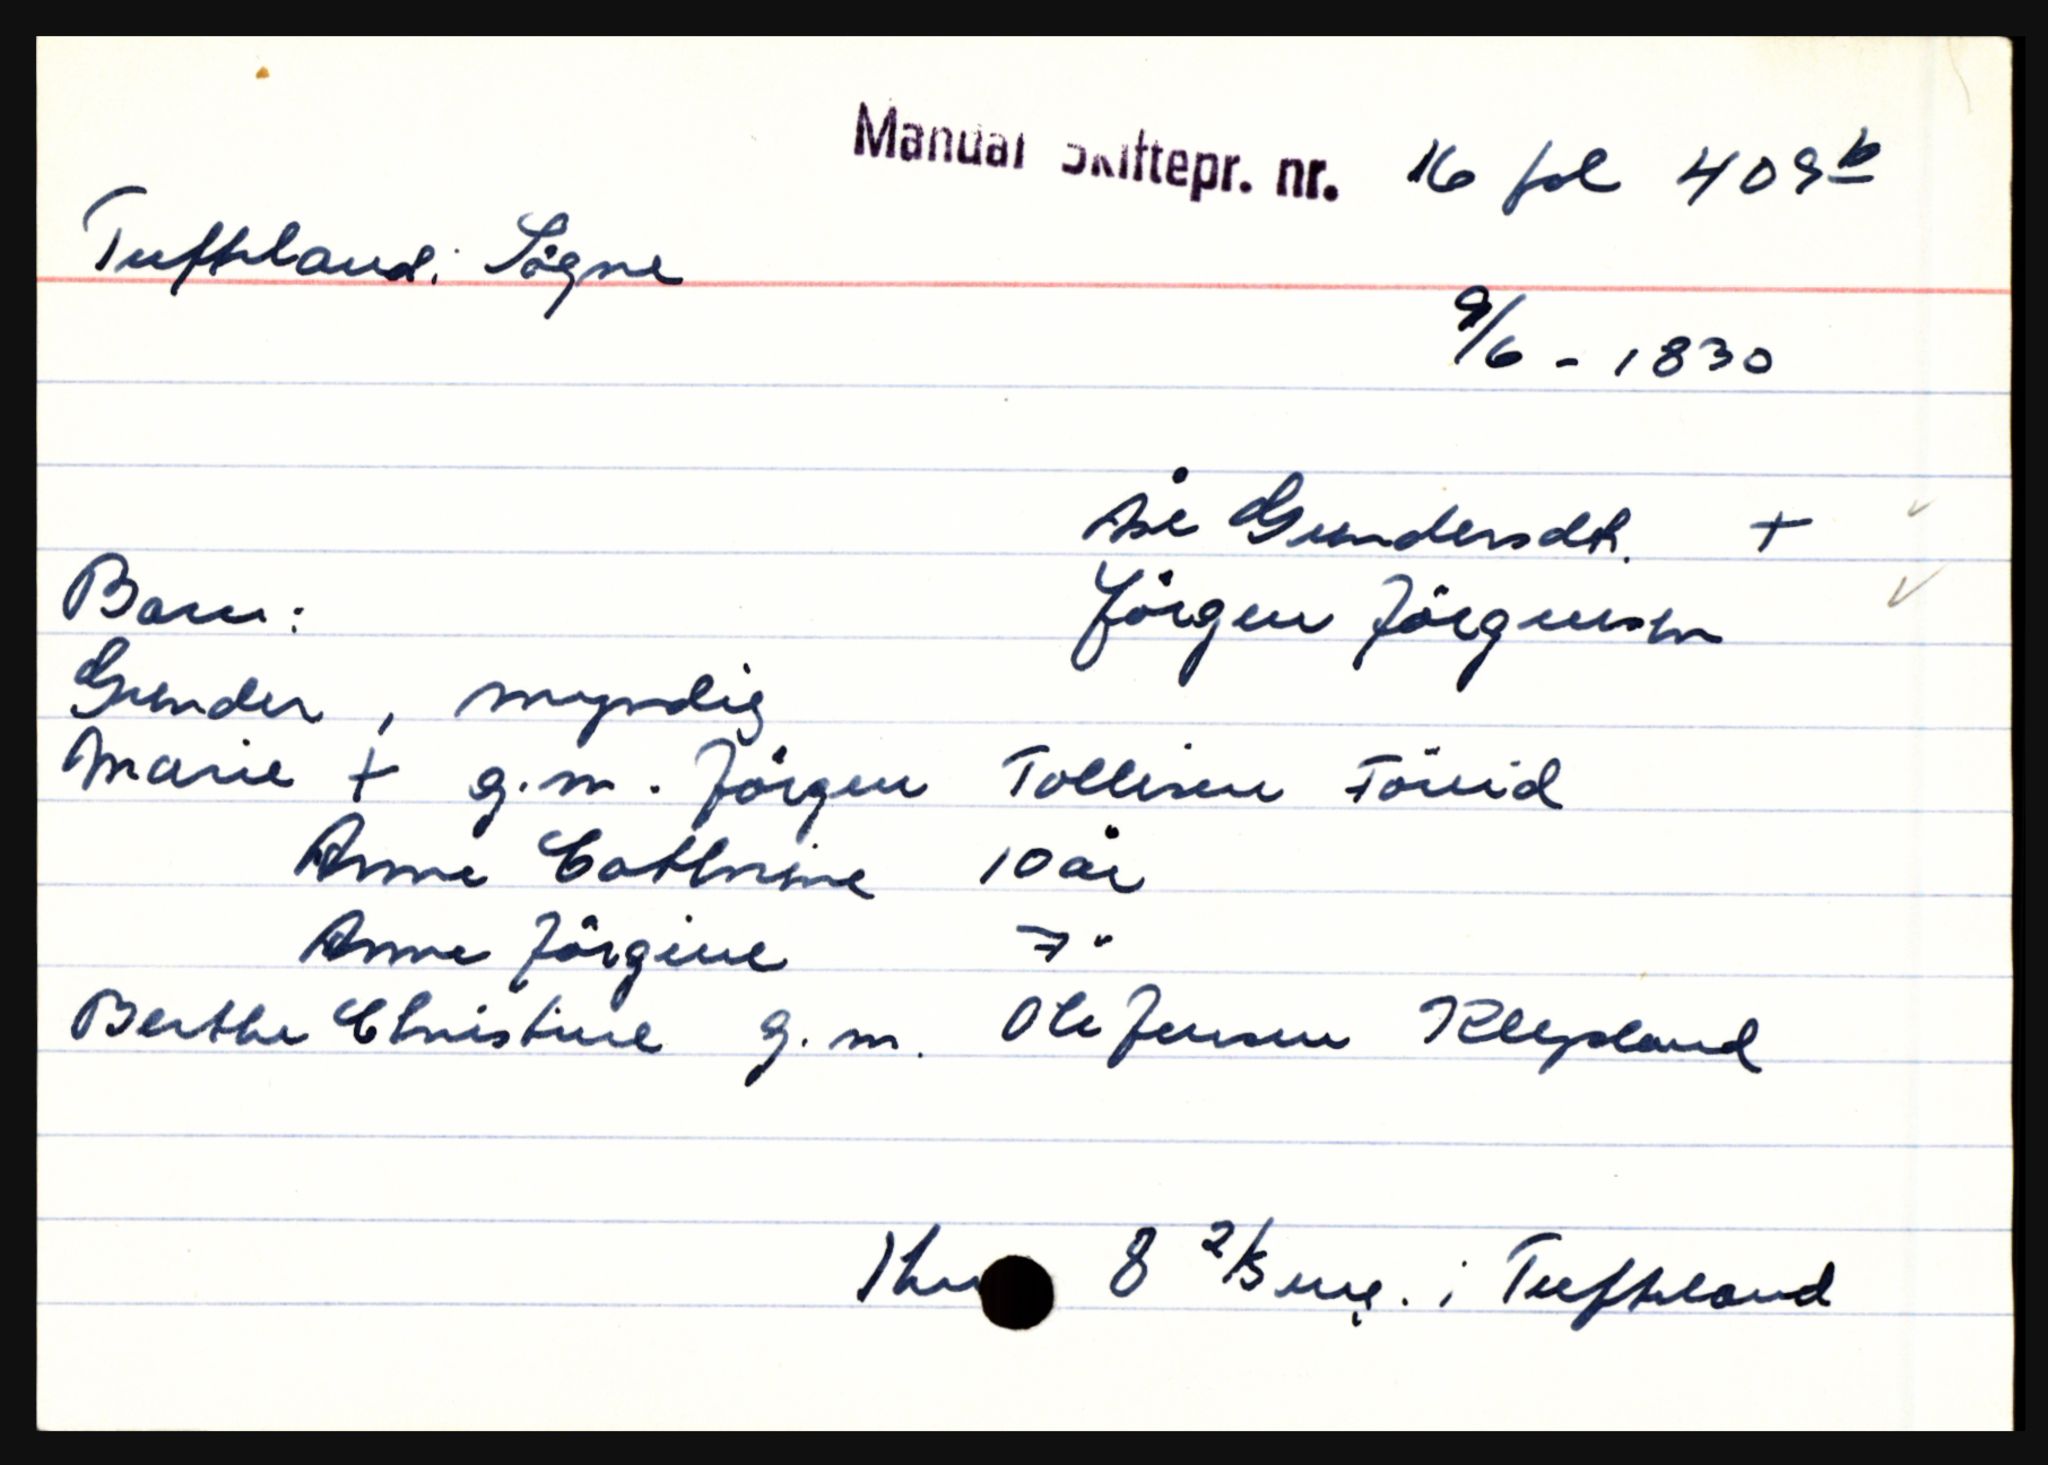 Manual Skiftepr. nr. 16 fol 409 b
Tufteland i Søgne
9/6 - 1830
Åse Gundersdtr. +
Barn: Jörgen Jörgensen
Gunder, myndig
Marie + g.m. Jörgen Tollisen
Anne Cathrine 10 år
Anne Jörgine 7 "
Berthe Christine g.m. Ole Jensen Klepland
8 2/3 i Tufteland